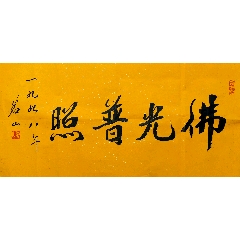 佛光普照
一九九八年
茗山